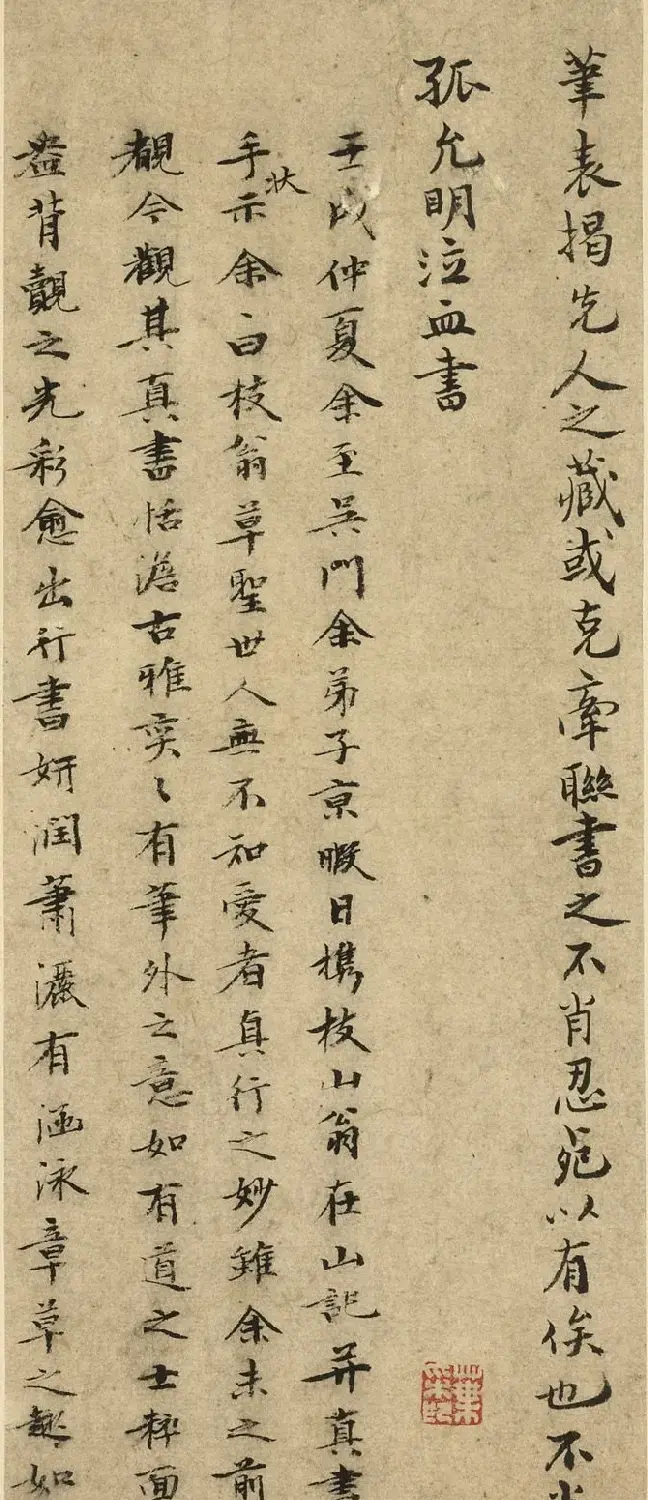 筆表揭先人之藏或克牽聯書之不肖忍死以有俟也不肖
孤允明泣血書
壬戌仲夏余至吴門余弟子京暇日携枝山翁在山記并真書
手狀示余曰枝翁草聖世人無不知愛者真行之妙雖余未之前
覩今觀其真書恬澹古雅奕〻有筆外之意如有道之士粹面
盎背覿之光彩愈出行書妍潤蕭灑有涵泳章草之趣如